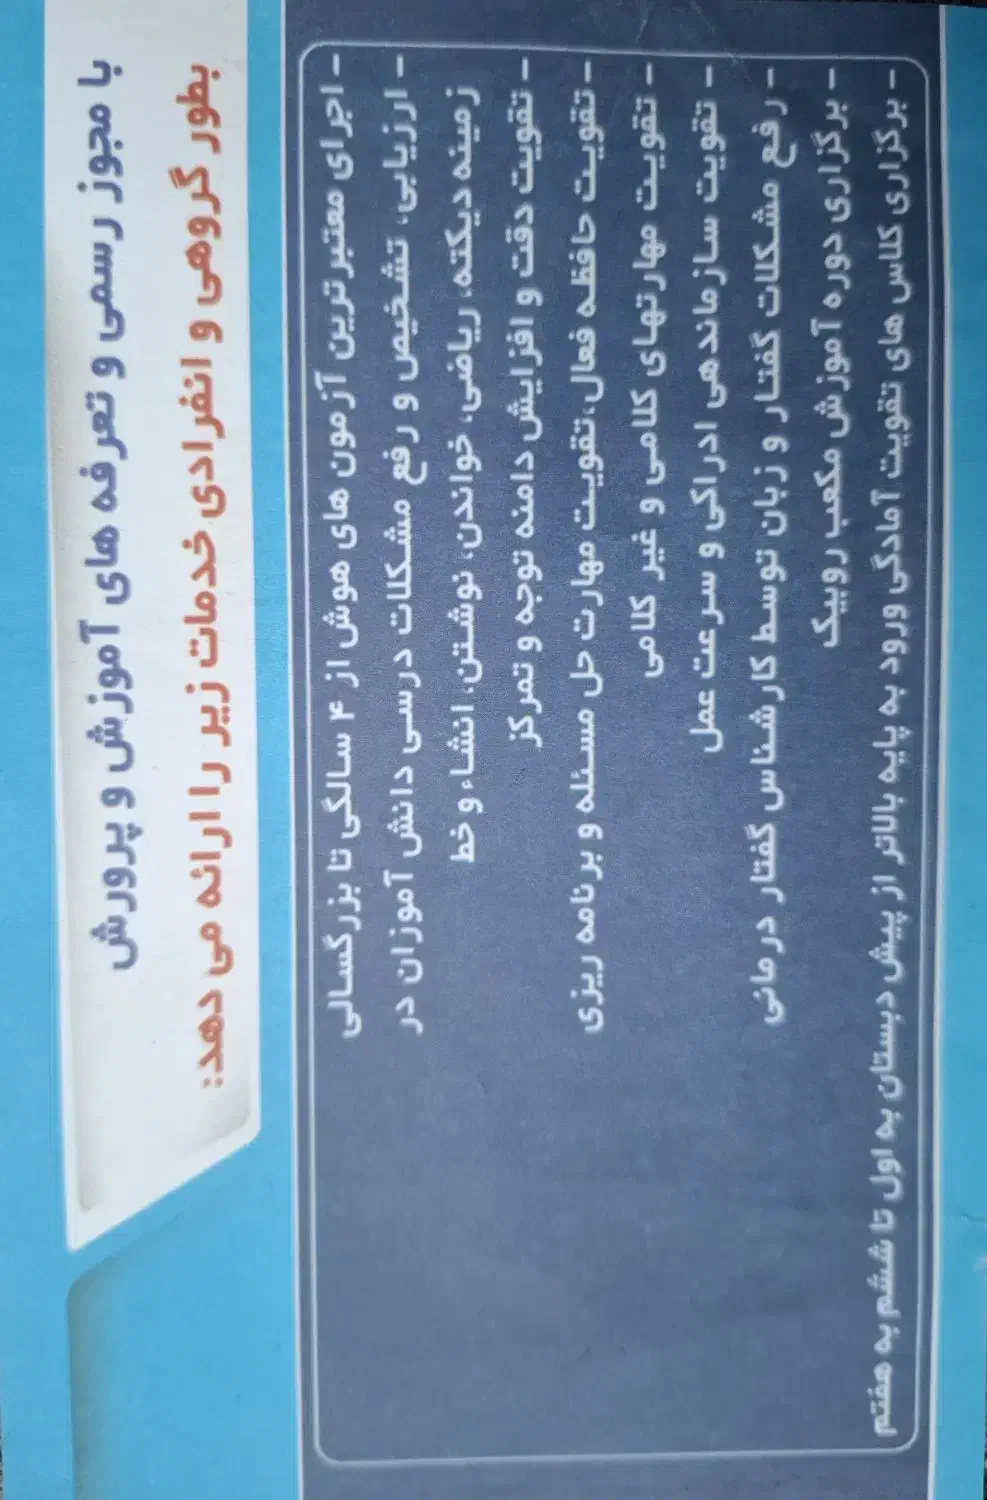 با مجوز رسمی و تعرفه های آموزش و پرورش
بطور گروهی و انفرادی خدمات زیر را ارائه می دهد:
- اجرای معتبرترین آزمون های هوش از ۴ سالگی تا بزرگسالی
- ارزیابی، تشخیص و رفع مشکلات درسی دانش آموزان در
زمینه دیکته، ریاضی، خواندن، نوشتن، انشاء و خط
- تقویت دقت و افزایش دامنه توجه و تمرکز
- تقویت حافظه فعال،تقویت مهارت حل مسئله و برنامه ریزی
- تقویت مهارتهای کلامی و غیر کلامی
- تقویت سازماندهی ادراکی و سرعت عمل
- رفع مشکلات گفتار و زبان توسط کارشناس گفتار درمانی
- برگزاری دوره آموزش مکعب روبیک
- برگزاری کلاس های تقویت آمادگی ورود به پایه بالاتر از پیش دبستان به اول تا ششم به هفتم